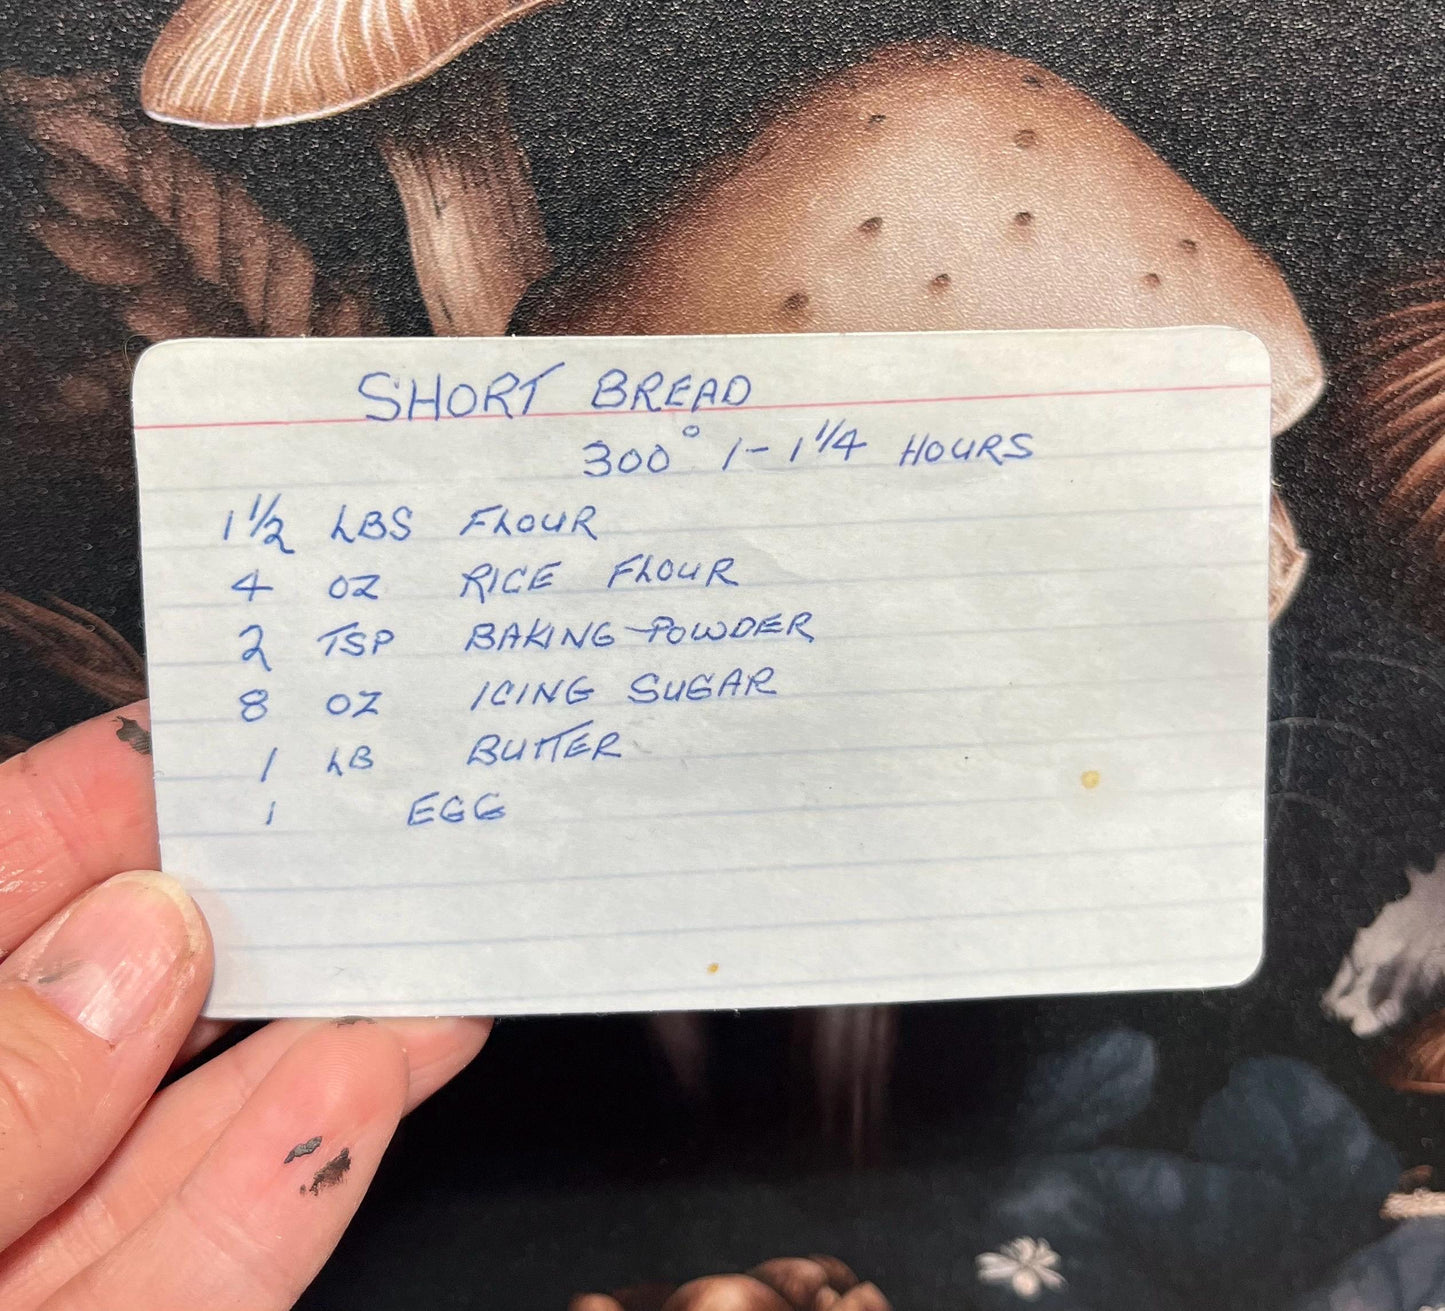 SHORT BREAD
300° 1 - 1 1/4 HOURS
1 1/2 LBS FLOUR
4 OZ RICE FLOUR
2 TSP BAKING POWDER
8 OZ ICING SUGAR
1 LB BUTTER
1 EGG